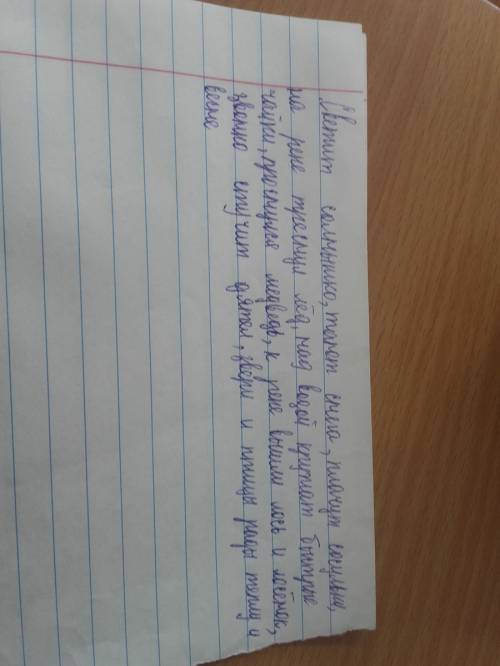 Светит солнышко, тают снега, плачут сосульки,
на реке треснул лёд, над водой кружат быстрые
чайки, проснулся медведь, к реке вышли лось и лосёнок,
звонко стучит дятел, звери и птицы рады теплу и
весне